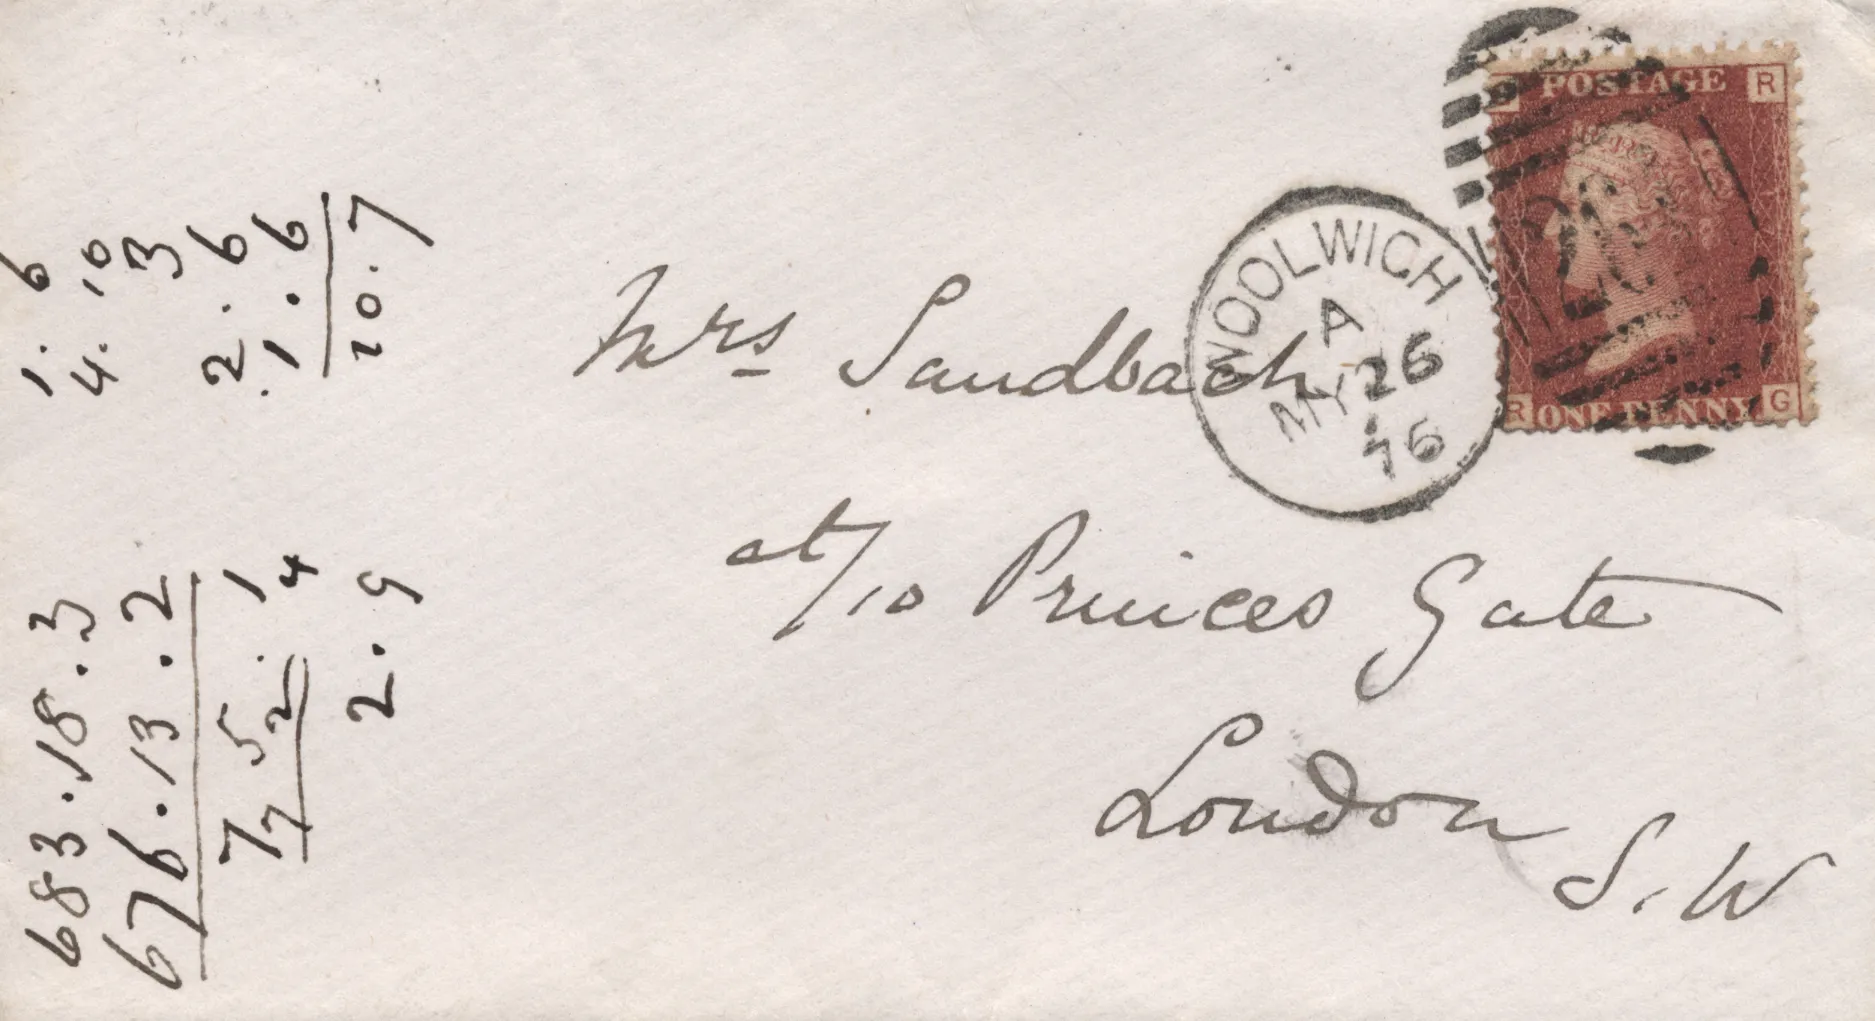 POSTAGE
R
R
ONE PENNY
G
WOOLWICH
A
MY 26
76
Mrs Sandbach
at/10 Princes Gate
London
S.W
1. 6
4. 10
3
2. 6
1. 6
10. 7
683.18.3
676.13.2
7 5. 1
7 2 4
2. 9